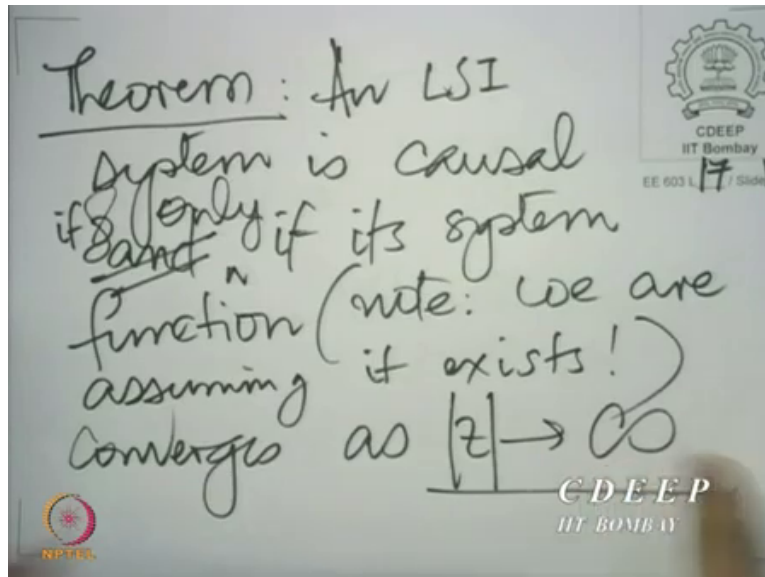 Theorem: An LSI
system is causal
if & only if its system
function (note: we are
assuming it exists!)
converges as |z| → ∞
CDEEP
IIT Bombay
EE 603 L 17 / Slide
CDEEP
IIT BOMBAY
NPTEL